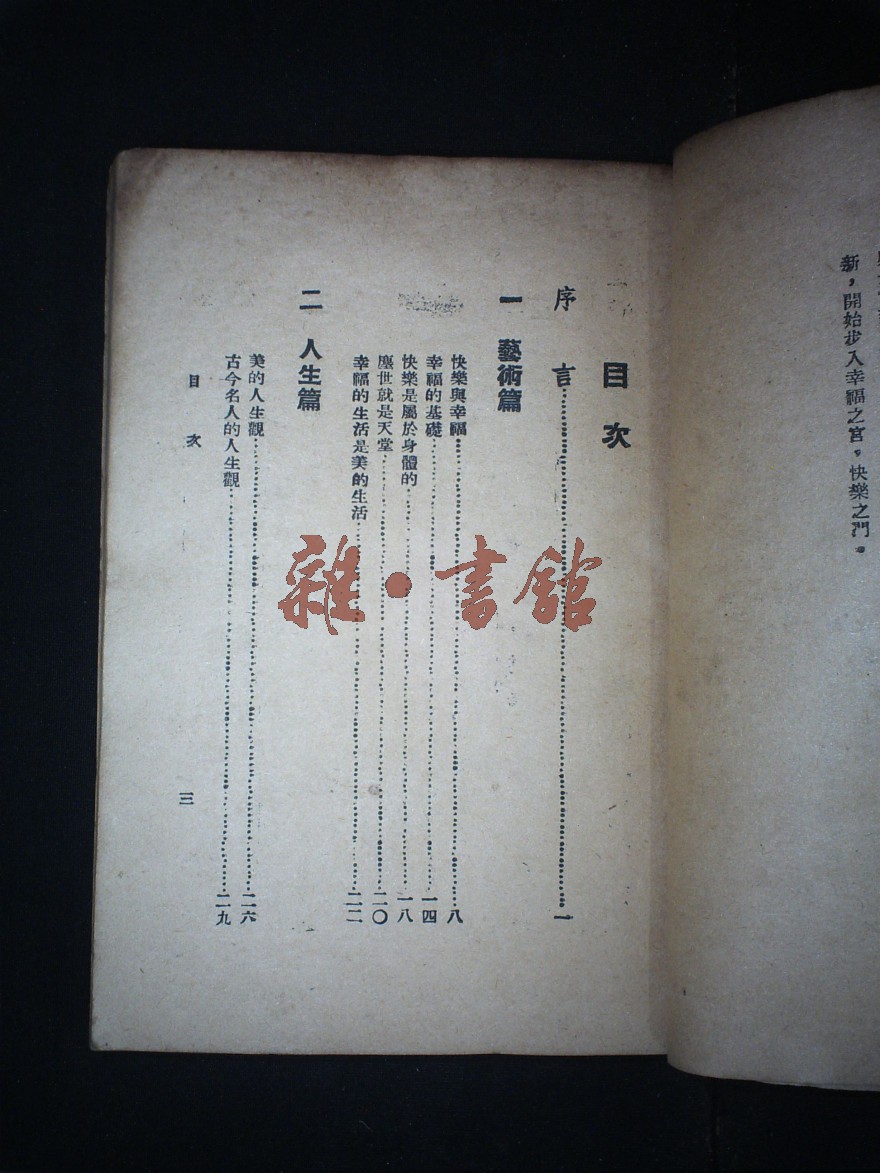 新，開始步入幸福之宮，快樂之門。
目次
序言……一
一 藝術篇
快樂與幸福……八
幸福的基礎……一四
快樂是屬於身體的……一八
塵世就是天堂……二〇
幸福的生活是美的生活……二二
二 人生篇
美的人生觀……二六
古今名人的人生觀……二九
目次 三
雜·書館